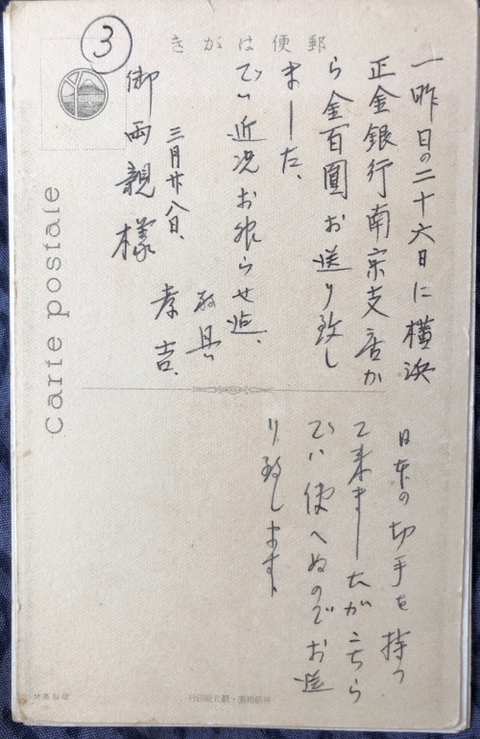 ③
郵便はがき
一昨日の二十六日に横浜
正金銀行南京支店か
ら金百圓お送り致し
ました、
でハ近况お知らせ迄、
敬具
三月廿八日、
孝吉、
御両親様
日本の切手を持つ
て来ましたがこちら
でハ使へぬのでお送
り致します、
Carte postale